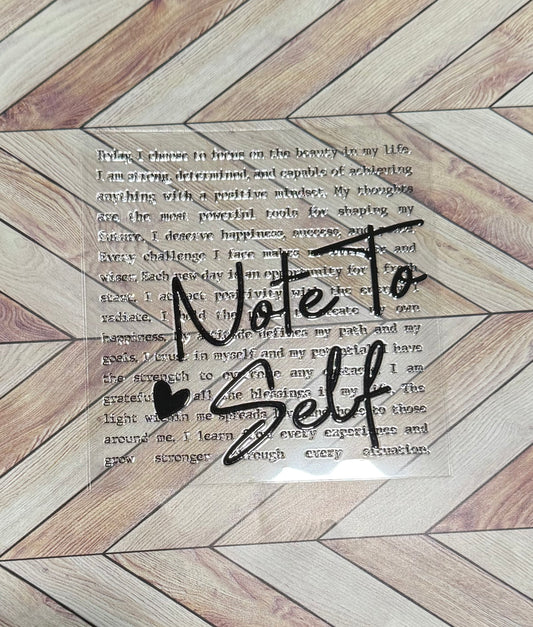 Today, I choose to focus on the beauty in my life.
I am strong, determined, and capable of achieving
anything with a positive mindset. My thoughts
are the most powerful tools for shaping my
future. I deserve happiness, success, and
Every challenge I face makes and
wiser. Each new day is an opportunity for a fresh
start. I attract positivity with the energy I
radiate. I hold the create my own
happiness. My attitude defines my path and my
goals. I trust in myself and my potential. I have
the strength to overcome any obstacle. I am
grateful for all the blessings in my life. The
light within me spreads love and hope to those
around me. I learn from every experience and
grow stronger through every situation.
Note To
Self